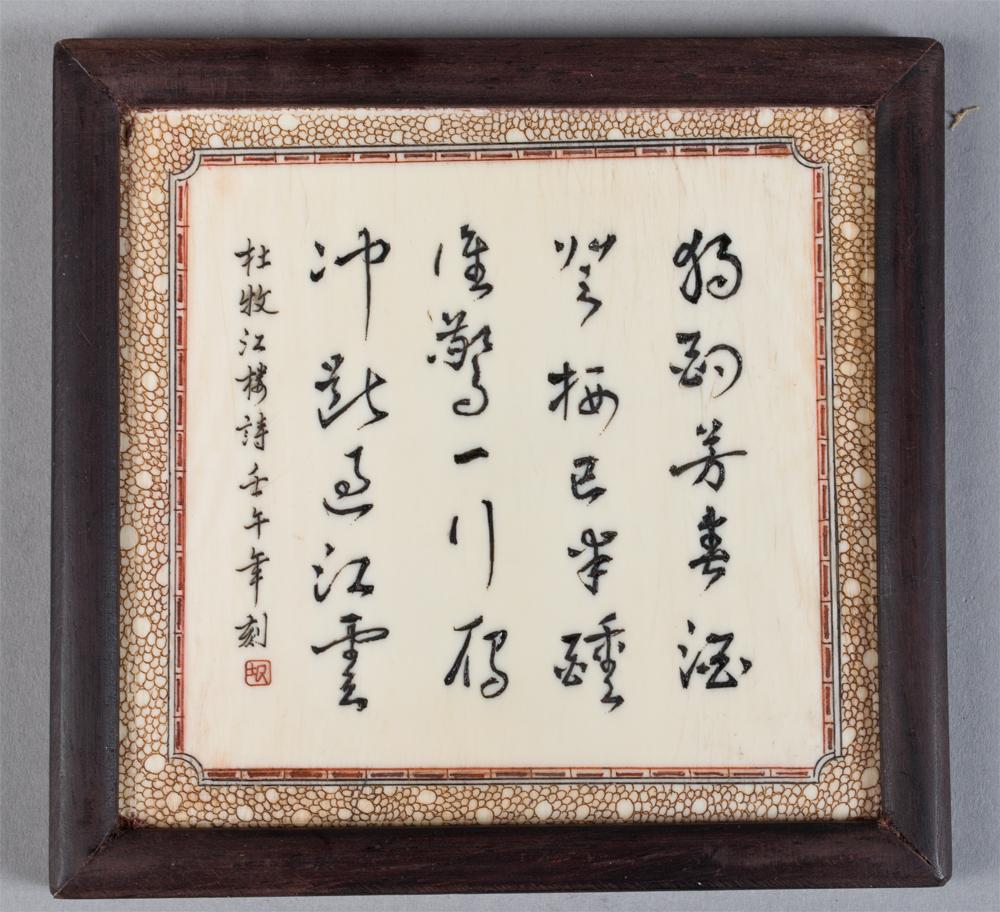 獨酌芳春酒
登樓已半醺
誰驚一行鴈
冲斷過江雲
杜牧江樓詩壬午年刻